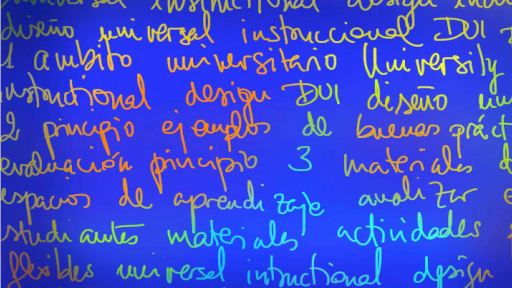 universal instructional design
diseño universal instruccional DUI
1 ambito universitario University
instructional design DUI diseño
2 principio ejemplos de buenas práct
evaluación principio 3 materiales d
espacios de aprendizaje analizar e
studiantes materiales actividades
flexibles universal intructional design